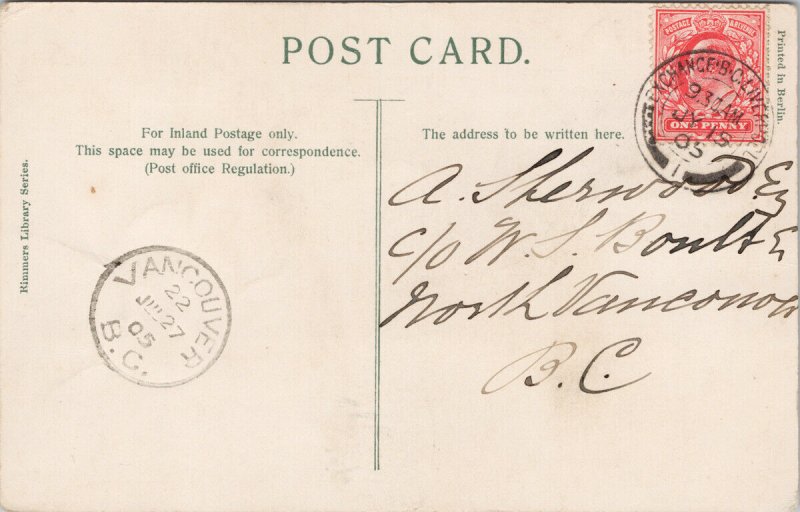 POST CARD.
POSTAGE & REVENUE
ONE PENNY
EXCHANGE·B·O·LIVERPOOL
9 30 AM
JY 15
05
1
Printed in Berlin.
For Inland Postage only.
This space may be used for correspondence.
(Post office Regulation.)
The address to be written here.
Rimmers Library Series.
A. Sherwood. Esq
c/o W. S. Boult E
North Vancouver
B.C.
VANCOUVER
22
JUL 27
05
B.C.